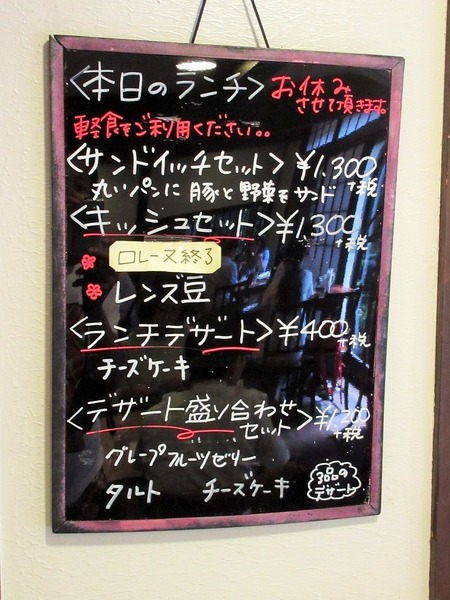 <本日のランチ> お休み
させて頂きます。
軽食をご利用ください。。
<サンドイッチセット> ¥1,300
丸いパンに 豚と野菜をサンド +税
<キッシュセット> ¥1,300
+税
ロレーヌ終了
レンズ豆
<ランチデザート> ¥400
+税
チーズケーキ
<デザート盛り合わせ
セット> ¥1,200
+税
グレープフルーツゼリー
タルト チーズケーキ
3品の
デザート